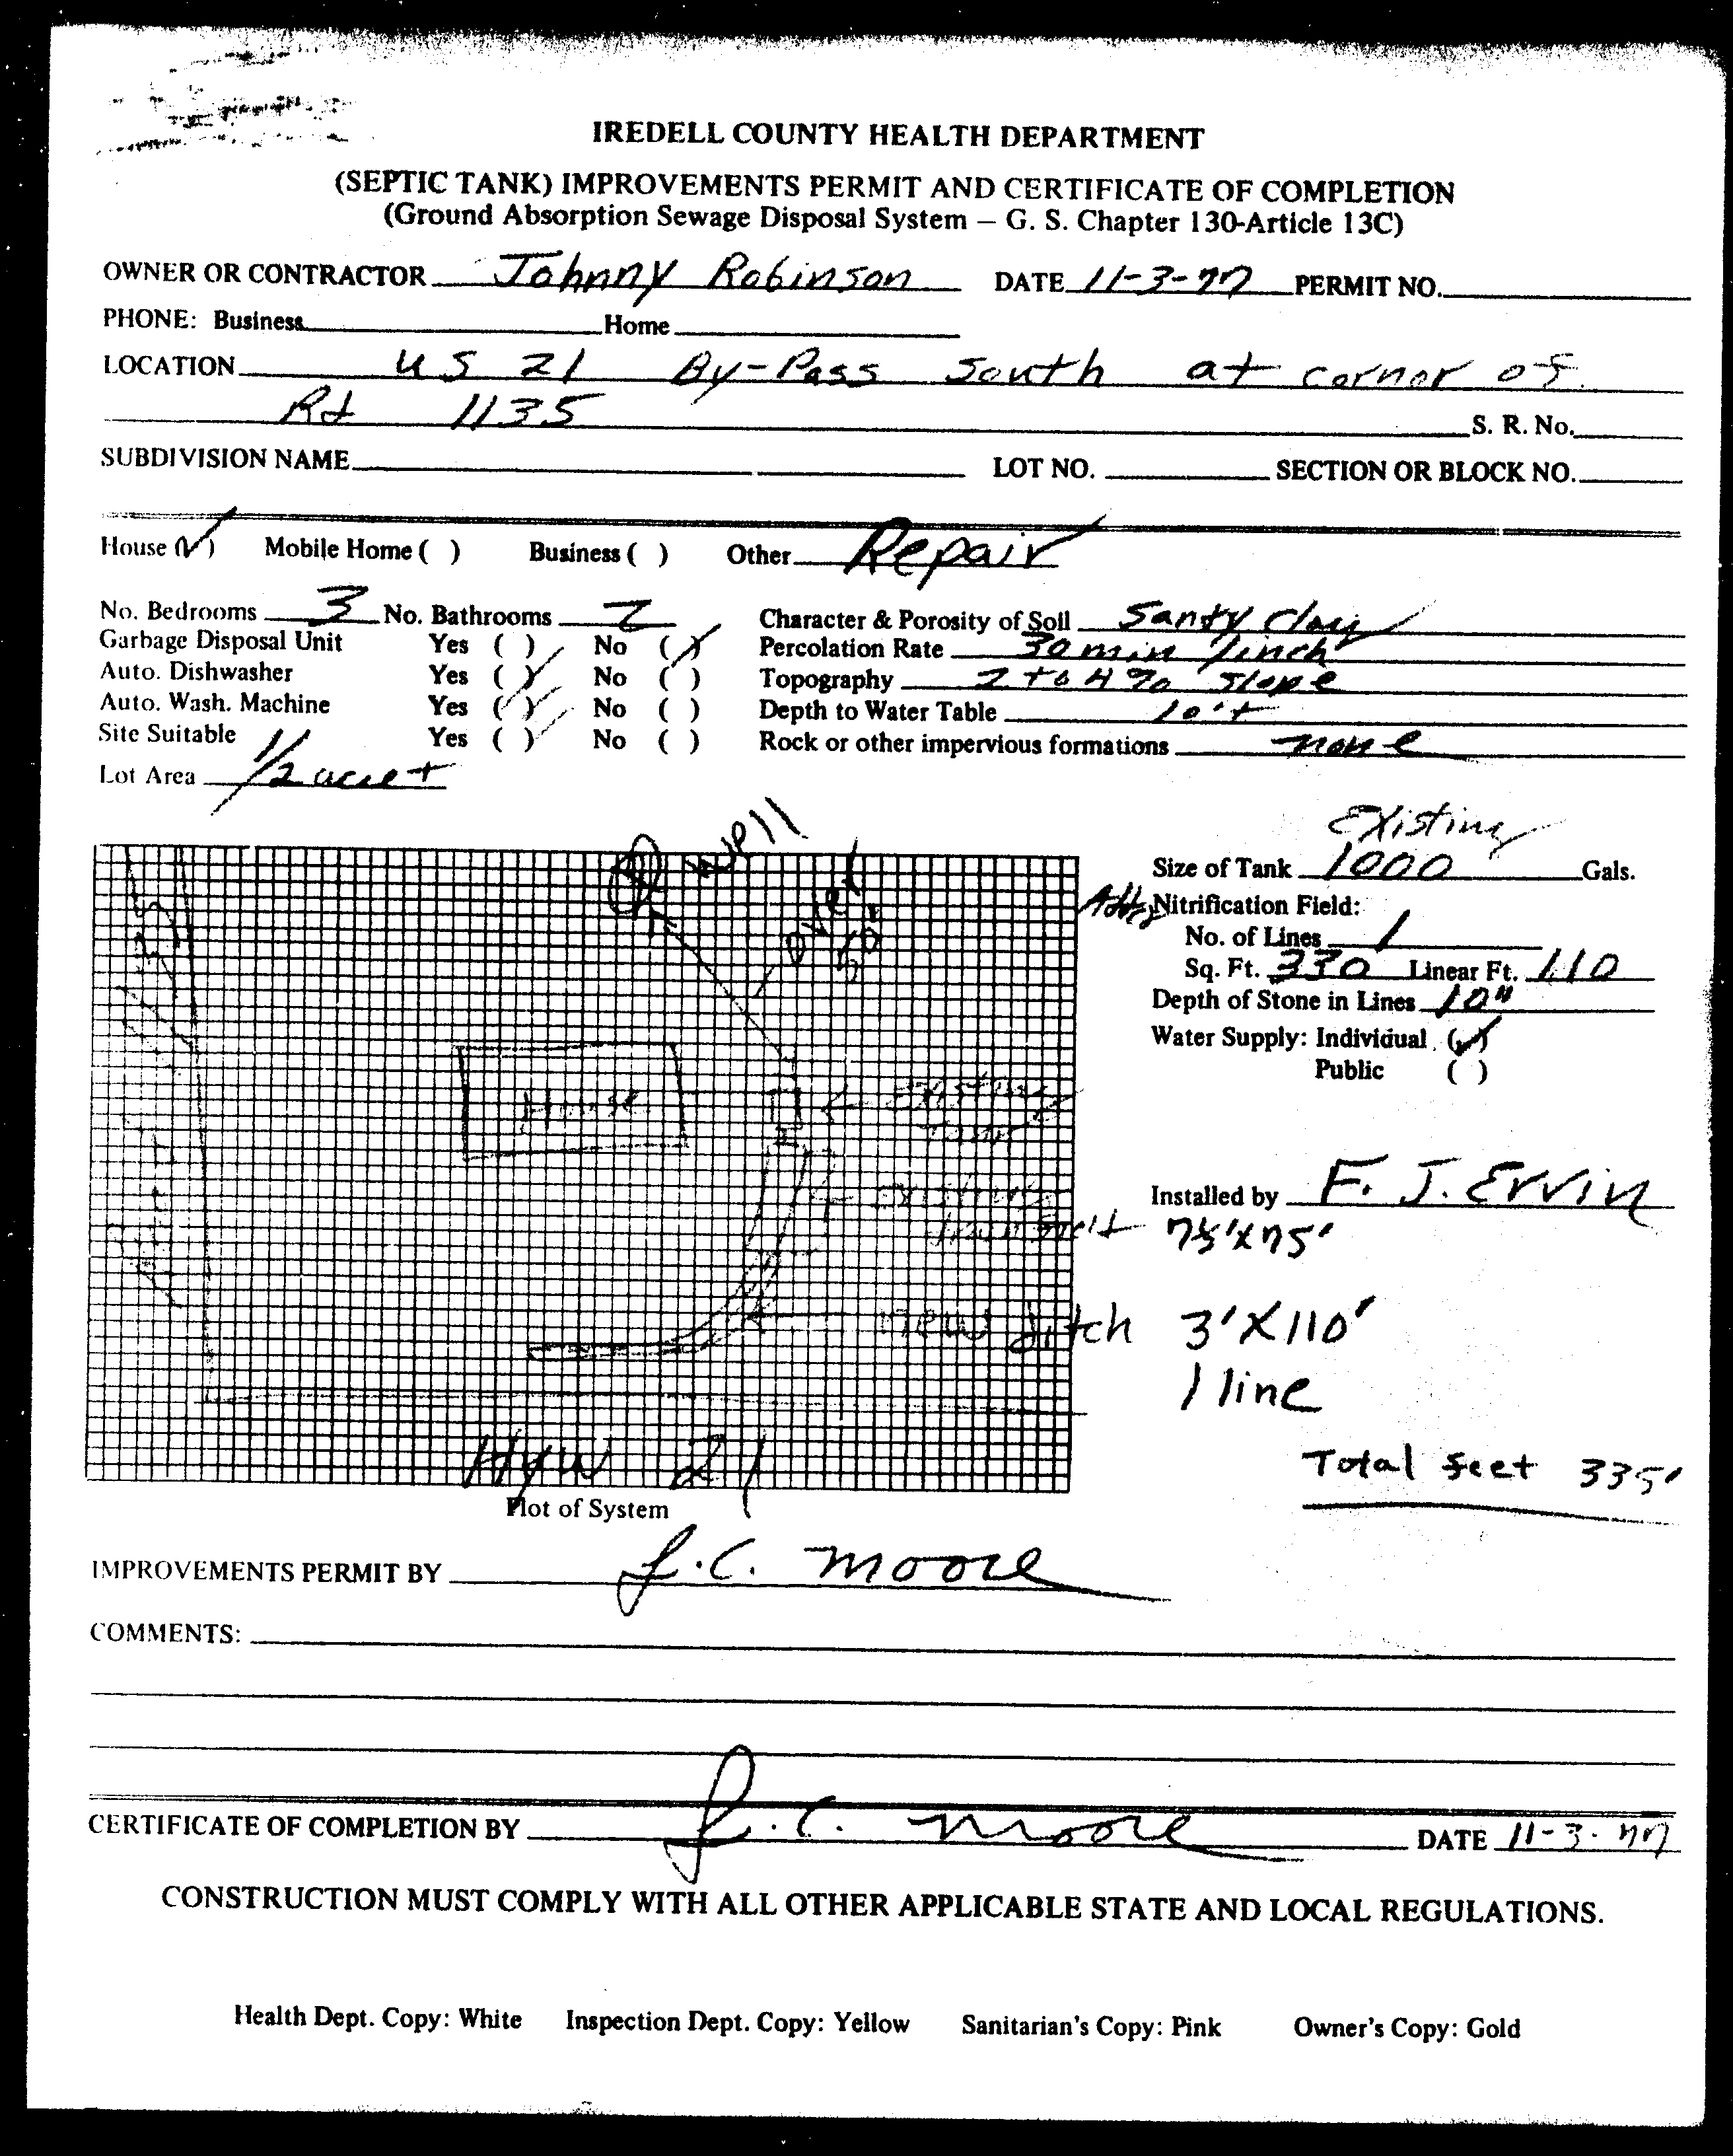 IREDELL COUNTY HEALTH DEPARTMENT
(SEPTIC TANK) IMPROVEMENTS PERMIT AND CERTIFICATE OF COMPLETION
(Ground Absorption Sewage Disposal System – G. S. Chapter 130-Article 13C)
OWNER OR CONTRACTOR Johnny Robinson DATE 11-3-77 PERMIT NO.
PHONE: Business Home
LOCATION US 21 By-Pass South at corner of
Rd 1135 S. R. No.
SUBDIVISION NAME LOT NO. SECTION OR BLOCK NO.
House (✓) Mobile Home ( ) Business ( ) Other Repair
No. Bedrooms 3 No. Bathrooms 2 Character & Porosity of Soil Sandy Clay
Garbage Disposal Unit Yes ( ) No (✓) Percolation Rate 30 min /inch
Auto. Dishwasher Yes (✓) No ( ) Topography 2 to 4% Slope
Auto. Wash. Machine Yes (✓) No ( ) Depth to Water Table 10'+
Site Suitable Yes (✓) No ( ) Rock or other impervious formations none
Lot Area 1/2 acre +
Well
over
50'
House
Existing
Tank
Existing
Hyw 21
Plot of System
Existing
Size of Tank 1000 Gals.
Nitrification Field:
No. of Lines 1
Sq. Ft. 330 Linear Ft. 110
Depth of Stone in Lines 10"
Water Supply: Individual (✓)
Public ( )
Installed by F. J. Ervin
75'
new ditch 3'X110'
1 line
Total feet 335'
IMPROVEMENTS PERMIT BY J.C. Moore
COMMENTS:
CERTIFICATE OF COMPLETION BY J.C. Moore DATE 11-3-77
CONSTRUCTION MUST COMPLY WITH ALL OTHER APPLICABLE STATE AND LOCAL REGULATIONS.
Health Dept. Copy: White Inspection Dept. Copy: Yellow Sanitarian's Copy: Pink Owner's Copy: Gold